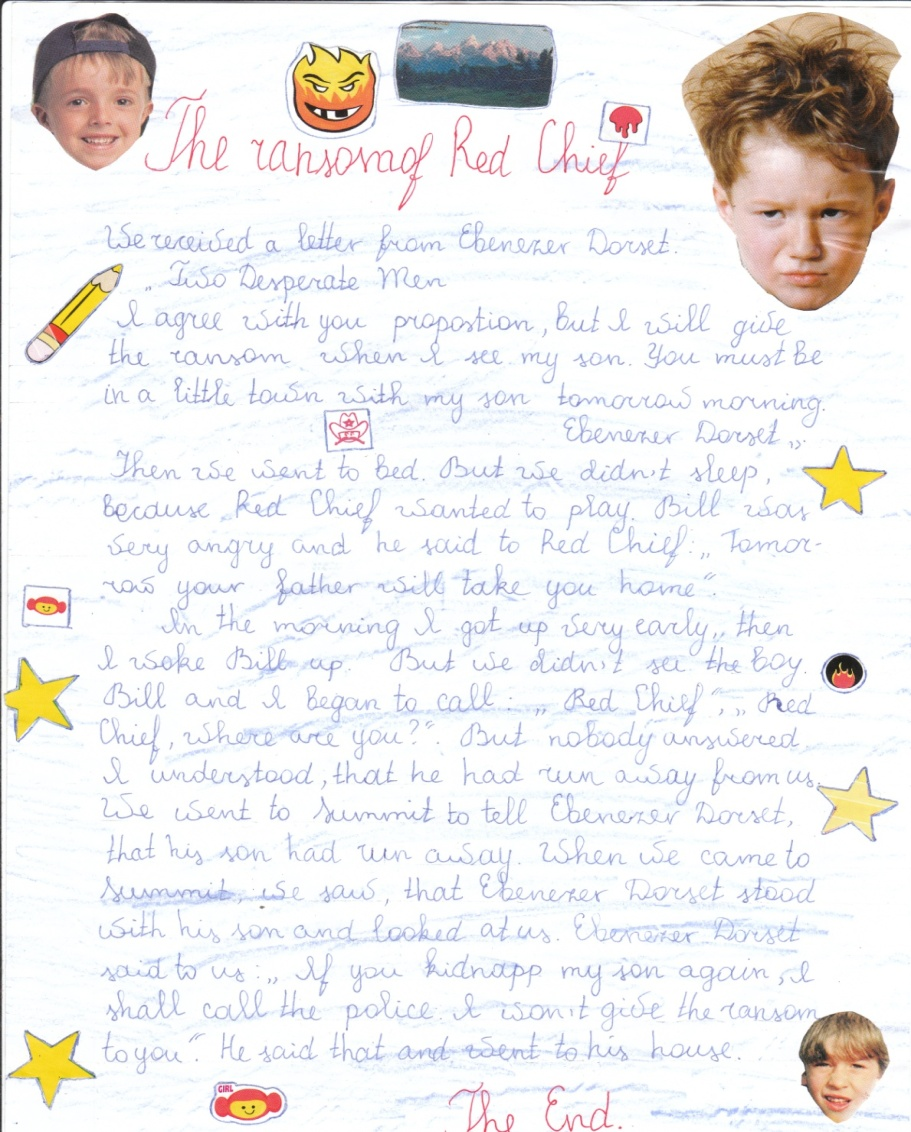 The ransom of Red Chief
We received a letter from Ebenezer Dorset.
„ Two Desperate Men
I agree with you propostion, but I will give
the ransom when I see my son. You must be
in a little town with my son tomorrow morning.
Ebenezer Dorset „.
Then we went to bed. But we didn't sleep,
because Red Chief wanted to play. Bill was
very angry and he said to Red Chief: „ Tomor-
row your father will take you home“.
In the morning I got up very early, then
I woke Bill up. But we didn't see the boy.
Bill and I began to call: „ Red Chief“, „ Red
Chief, where are you?“. But nobody answered.
I understood, that he had run away from us.
We went to Summit to tell Ebenezer Dorset,
that his son had run away. When we came to
Summit, we saw, that Ebenezer Dorset stood
with his son and looked at us. Ebenezer Dorset
said to us: „ If you kidnapp my son again, I
shall call the police. I won't give the ransom
to you“. He said that and went to his house.
GIRL
The End.